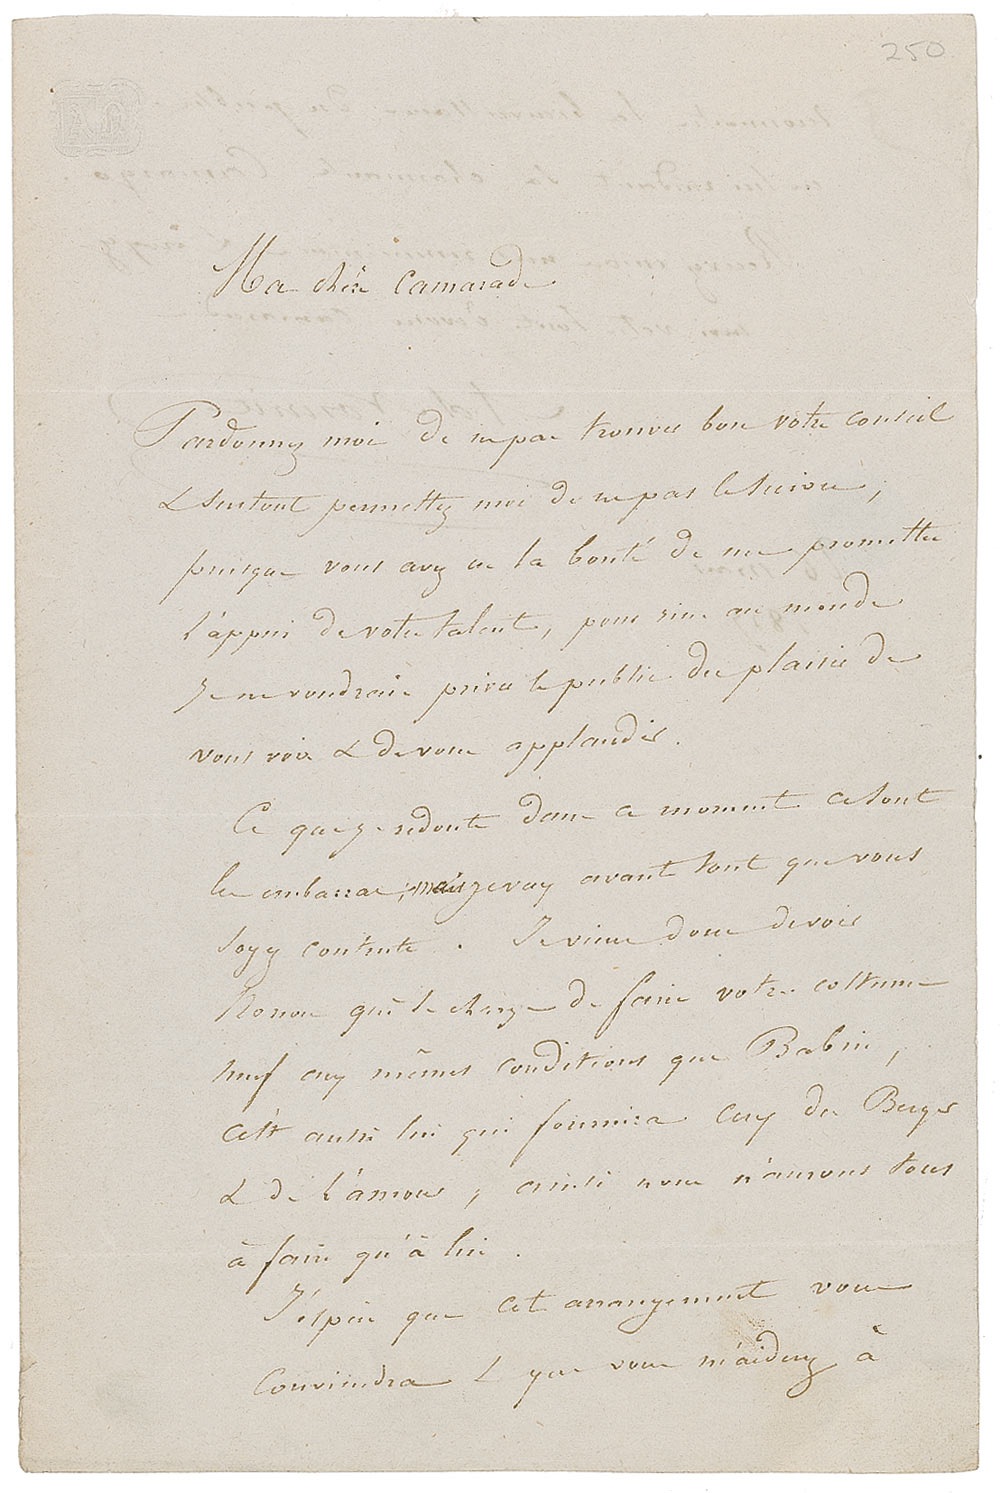 250
Ma chère Camarade
Pardonnez moi de ne pas trouver bon votre conseil
& surtout permettez moi de ne pas le suivre ;
puisque vous avez eu la bonté de me promettre
l'appui de votre talent, pour rien au monde
je ne voudrais priver le public du plaisir de
vous voir & de vous applaudir.
Ce que je redoute dans ce moment ce sont
les embarras, mais je veux avant tout que vous
soyez contente . Je viens donc de voir
qui se charge de faire votre costume
neuf aux mêmes conditions que Babin ,
c'est aussi lui qui fournira ceux des Berger
& de l'amour , ainsi nous n'aurons tous
à faire qu'à lui .
J'espère que cet arrangement vous
conviendra & que vous m'aiderez à